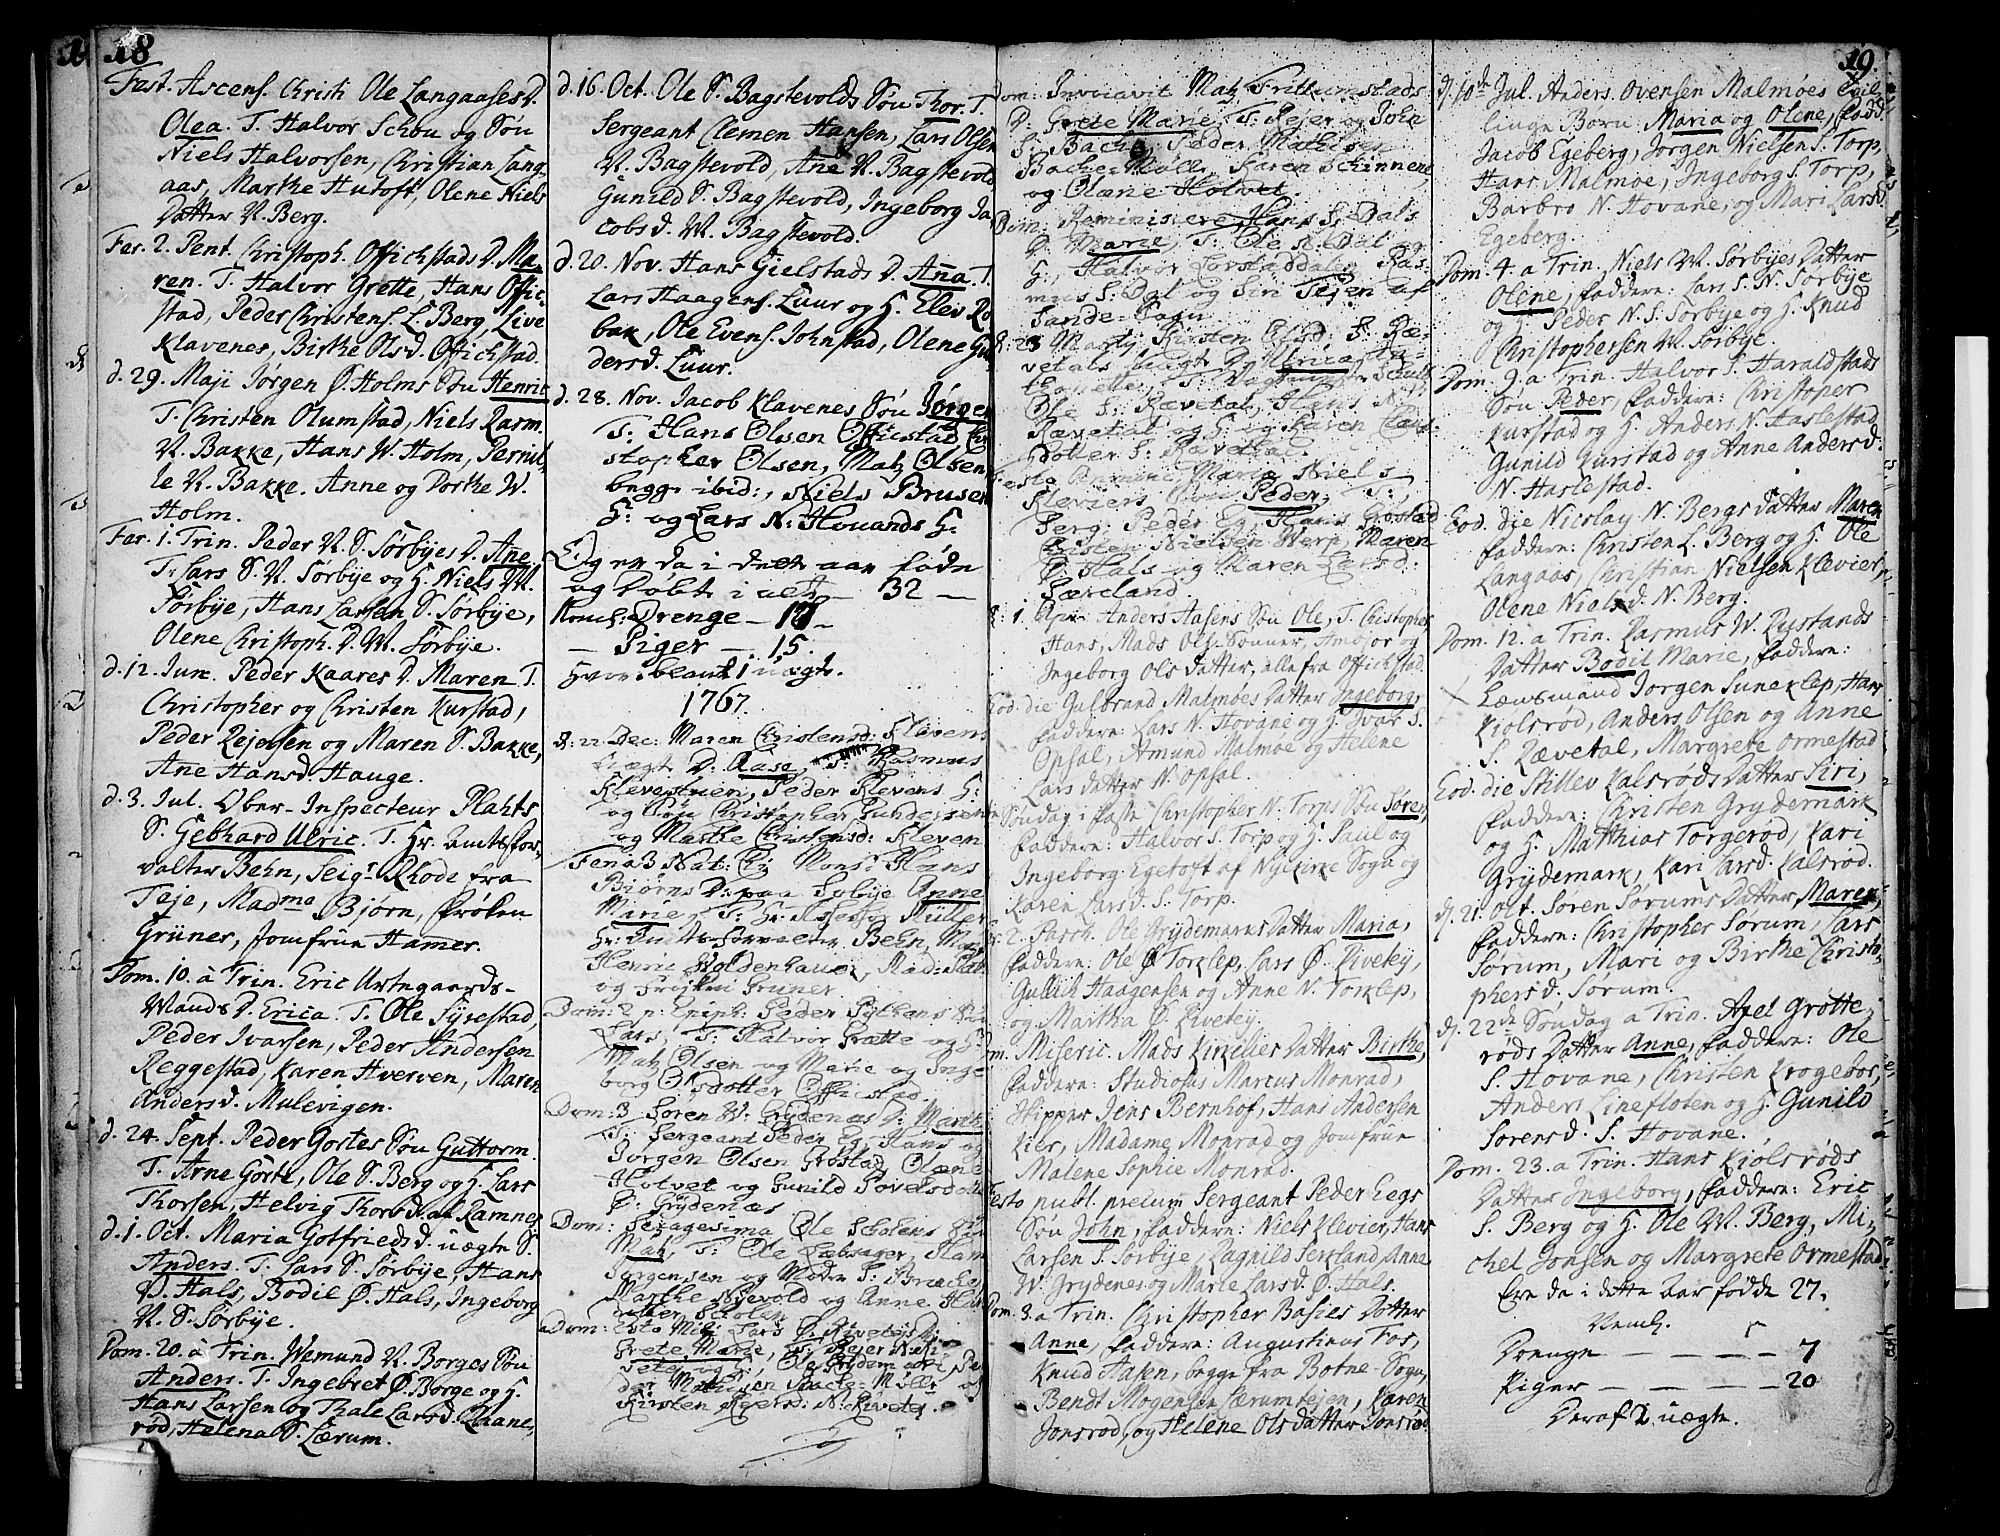 18
Fest. Ascens. Christi Ole Langaases D.
Olea. T. Halvor Schou og Søn
Niels Halvorsen, Christian Lang-
aas, Marthe Hutoft, Olene Niels
Datter N. Berg.
Fer. 2. Pent. Christoph. Offichstads D. Ma-
ren. T. Halvor Grette, Hans Offic-
stad, Peder Christens. L. Berg, Live
Klavenes, Birthe Olsd. Offichstad.
d. 29. Maji Jørgen Ø. Holms Søn Henric
T. Christen Olumstad, Niels Rasm.
N. Bakke, Hans W. Holm, Pernil-
le N. Bakke. Anne og Dorthe W.
Holm.
Fer. 1. Trin. Peder N. S. Sørbyes D. Ane
T. Lars S. N. Sørbye og H. Niels W.
Sørbye, Hans Larsen S. Sørbye,
Olene Christoph. D. W. Sørbye.
d. 12. Jun. Peder Kaares D. Maren T.
Christopher og Christen Kurstad,
Peder Rejersen og Maren S. Bakke,
Ane Hansd. Hauge.
d. 3. Jul. Ober-Inspecteur Plahts
S. Gebhard Ulric. T. Hr. Amtsfor-
valter Behn, Seigr. Rhode fra
Teje, Madme Bjørn, Frøken
Grüner, Jomfrue Hamer.
Dom. 10. a Trin. Eric Urtegaards-
Mands D. Erica. T. Ole Fyrestad,
Peder Ivarsen, Peder Andersen
Reggestad, Karen Hverven, Maren
Andersd. Mulevigen.
d. 24. Sept. Peder Gortes Søn Guttorm.
T. Arne Gorte, Ole S. Berg og H. Lars
Thorsen, Helvig Thorsd. af Ramnes
d. 1. Oct. Maria Gotfriedsd. uægte S.
Anders. T. Lars S. Sørbye, Hans
Ø. Hals, Bodil Ø. Hals, Ingeborg
N. S. Sørbye.
Dom. 20. a Trin. Wemund N. Borges Søn
Anders. T. Ingebret Ø. Borge og H.
Hans Larsen og Thale Larsd. Raane-
rød, Helena S. Lærum.
d. 16. Oct. Ole S. Bagstevolds Søn Thor. T.
Sergeant Clemen Hansen, Lars Olsen
N. Bagstevold, Ane N. Bagstevold
Gunild S. Bagstevold, Ingeborg Ja-
cobsd. N. Bagstevold.
d. 20. Nov. Hans Gielstads D. Anna. T.
Lars Haagens. Luur og H. Elev Ro
bak, Ole Evens. Johnstad, Olene Gu-
dersd. Luur.
d. 28. Nov. Jacob Klavenes Søn Jørgen
T: Hans Olsen Offistad, Chri
stopher Olsen, Matz Olsen
begge ibid:, Niels Brusen
H: og Lars N: Hovands H:
Og er da i dette aar føde
og døbt i alt 32
Nemh: Drenge 17
Piger 15.
Hvor iblant 1 uægte.
1767.
d: 22 Dec: Maren Christensd: Klavens
uægte D: Aase. T: Rasmus
Klevestuen, Peder Klevens H:
og Søn Christopher Gundersen
og Marthe Christensd: Kleven
Fer. 3 Nat: Chr. Mons: Hans
Biørns D: paa Solbye Anne
Marie, T: Hr: Assessor Müller
Hr: Amts-Forvalter Behn, Mons:
Henric Woldenhauer, Mad:
og Frøjken Grüner
Dom: 2 p: Epiph: Peder Sølkens Søn
Lars, T: Halvor Grætte og H:
Matz Olsen og Marie og Inge
borg Olsdotter Offiestad.
Dom: 3 Søren W. Grydenæs D: Marthe
T: Sergeant Peder Eg, Hans og
Jørgen Olsen Grøstad, Olæne
Holvet og Gunild Povelsdotter
Ø: Grydenæs
Dom: Sexagesima Ole Skolens Søn
Matz, T: Ole Labsager, Ham
Jørgensen og Moder S: Bræche
Marthe Njevold og Anne Hen
Dom: Esto Mihi Lars Ø: Kiveteys D:
Grete Marie, T: Rejer N: Ki
vetey og H:, Ole Grydemark, Pe
der Mathisen Backe-Mølle og
Kirsten Rejersd: N: Kivetej.
Dom: Invocavit Matz Frittumstads
D: Grete Marie, T: Rejer og John
S: Backe, Peder Mathisen
Backe-Mølle, Karen Schinnene
og Olæne Holvet.
Dom: Reminiscere Hans S: Dals
D: Marie, T: Ole N: Dal og
H:, Halvor Lorstaddalen, Ras-
mus S: Dal og Siri Tejen af
Sande-Sogn
d: 25 Martij Kirsten Olsd: S: Ræ-
vetals uægte D: Ulrica
Ole S: Rævetal, Hans N:
Rævetal og H: og Karen Lars-
dotter S: Ravethal.
Festo Annunc: Mariæ Niels
Kleviers Søn Peder, T:,
Serg: Peder Eg, Hans Grøstad
Cristen Nielsen Nerp, Maren
Ø: Hals og Maren Larsd:
Færeland.
d: 1. Apr. Anders Aasens Søn Ole, T. Christopher
Hans, Mads Ols-Sønner, Amosor og
Ingeborg Ols Datter, alle fra Offichstad
Eod. die Gulbrand Malmøes Datter Ingeborg,
Faddere: Lars N. Hovane og H. Ivar S.
Opsal, Amund Malmøe og Helene
Lars datter N. Opsal.
Søndag i Faste Christopher N. Torps Søn Søren,
Faddere: Halvor S. Torp og H. Paul og
Ingeborg Egetoft af Nykirke Sogn og
Karen Larsd. S. Torp.
Fer. 2. Pasch. Ole Grydemarks Datter Maria,
Faddere: Ole Ø Torklep, Lars Ø. Kivetey,
Gullich Haagensen og Anne N. Torklep,
og Martha Ø. Kivetey.
Dom. Miseric. Mads Kirkelies Datter Birthe,
Faddere: Studiosus Marcus Monrad,
Skipper Jens Bernhof, Hans Andersen
Kier, Madame Monrad og Jomfrue
Malene Sophie Monrad.
Festo publ. precum Sergeant Peder Eegs
Søn John, Faddere: Niels Klevier, Hans
Larsen S. Sørbye, Ragnild Ferkland, Anne
W. Grydenes og Marie Larsd. Ø. Hals.
Dom. 3. a Trin. Christopher Basies Datter
Anne, Faddere: Augustinus Fos,
Knud Aasen, begge fra Botne-Sogn,
Bendt Mogensen Lærumtejen, Karen
Jonsrød, og Helene Ols datter Jonsrød.
19
d. 10de Jul. Anders Ovensen Malmøes Tvil-
linge Børn Maria og Olene, Fadd.
Jacob Egeberg, Jørgen Nielsen S. Torp,
Hans Malmøe, Ingeborg S. Torp,
Barbro N. Hovane, og Mari Larsd.
Egeberg.
Dom. 4. a Trin. Niels W. Sørbyes Datter
Olene, Faddere: Lars S. N. Sørbye
og H. Peder N. S. Sørbye og H. Knud
Christophersen W. Sørbye.
Dom. 9. a Trin. Halvor S. Haraldstads
Søn Peder, Faddere: Christoper
Kurstad og H. Anders N. Haslestad
Gunild Kurstad og Anne Andersd.
N. Haslestad.
Eod. die Nicolay N. Bergs Datter Maren
Faddere: Christen L. Berg og H. Ole
Langaas, Christian Nielsen Klevier,
Olene Nielsd. N. Berg.
Dom. 12. a Trin. Rasmus W. Rustands
Datter Bodil Marie, Faddere:
Lænsmand Jørgen Suneklep, Hans
Kiolsrød, Anders Olsen og Anne
S. Rævetal, Margrete Ormestad
Eod. die Stillev Kalsrøds Datter Siri,
Faddere: Christen Grydemark
og H. Matthias Torgerød, Kari
Grydemark, Kari Larsd. Kalsrød.
d. 21. Oct. Søren Sørums Datter Maren,
Faddere: Christopher Sørum, Lars
Sørum, Mari og Birthe Christo-
phersd. Sørum.
d. 22de Søndag a Trin. Axel Grøtte-
røds Datter Anne, Faddere: Ole
S. Hovane, Christen Krogebor,
Anders Linefloten og H. Gunild
Sorensd. S. Hovane.
Dom. 23. a Trin. Hans Kjolsrøds
Datter Ingeborg, Faddere: Eric
S. Berg og H. Ole W. Berg, Mi-
chel Jonsen og Margrete Ormestad
Ere da i dette Aar fødde 27.
Nemh.
Drenge — — — — 7
Piger — — — — 20
Deraf 2 uægte.